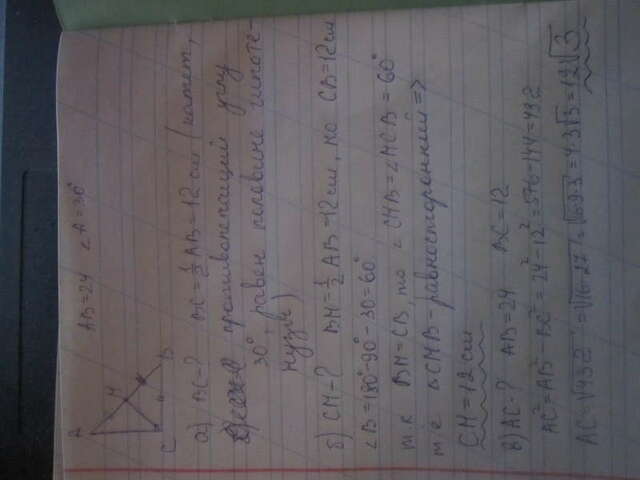 A
M
C
B
AB=24 ∠A=30°
а) BC-? BC=½AB=12см (катет,
противолежащий углу
30°, равен половине гипоте-
нузы)
б) CM-? BM=½AB=12см, но CB=12см
∠B=180°-90°-30=60°
т.к BM=CB, то ∠CMB=∠MCB=60°
т.е ΔCMB-равносторонний =>
CM=12см
в) AC-? AB=24 BC=12
AC²=AB²-BC²=24²-12²=576-144=432
AC=√432=√16·27=√16·9·3=4·3√3=12√3